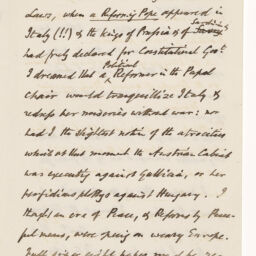 Laws, when a Reforming Pope appeared in
Sardinia
Italy (!!) & the Kings of Prussia & of Savoy
had freely declared for Constitutional Govt
Political
I dreamed that a Reformer in the Papal
Chair would tranquillize Italy &
redress her miseries without war: nor
had I the slightest notion of the atrocities
which at that moment the Austrian Cabinet
was executing against Gallicia, or her
perfidious plottings against Hungary. I
thought an era of Peace, & Reforms by Peace-
ful means, were opening on weary Europe.